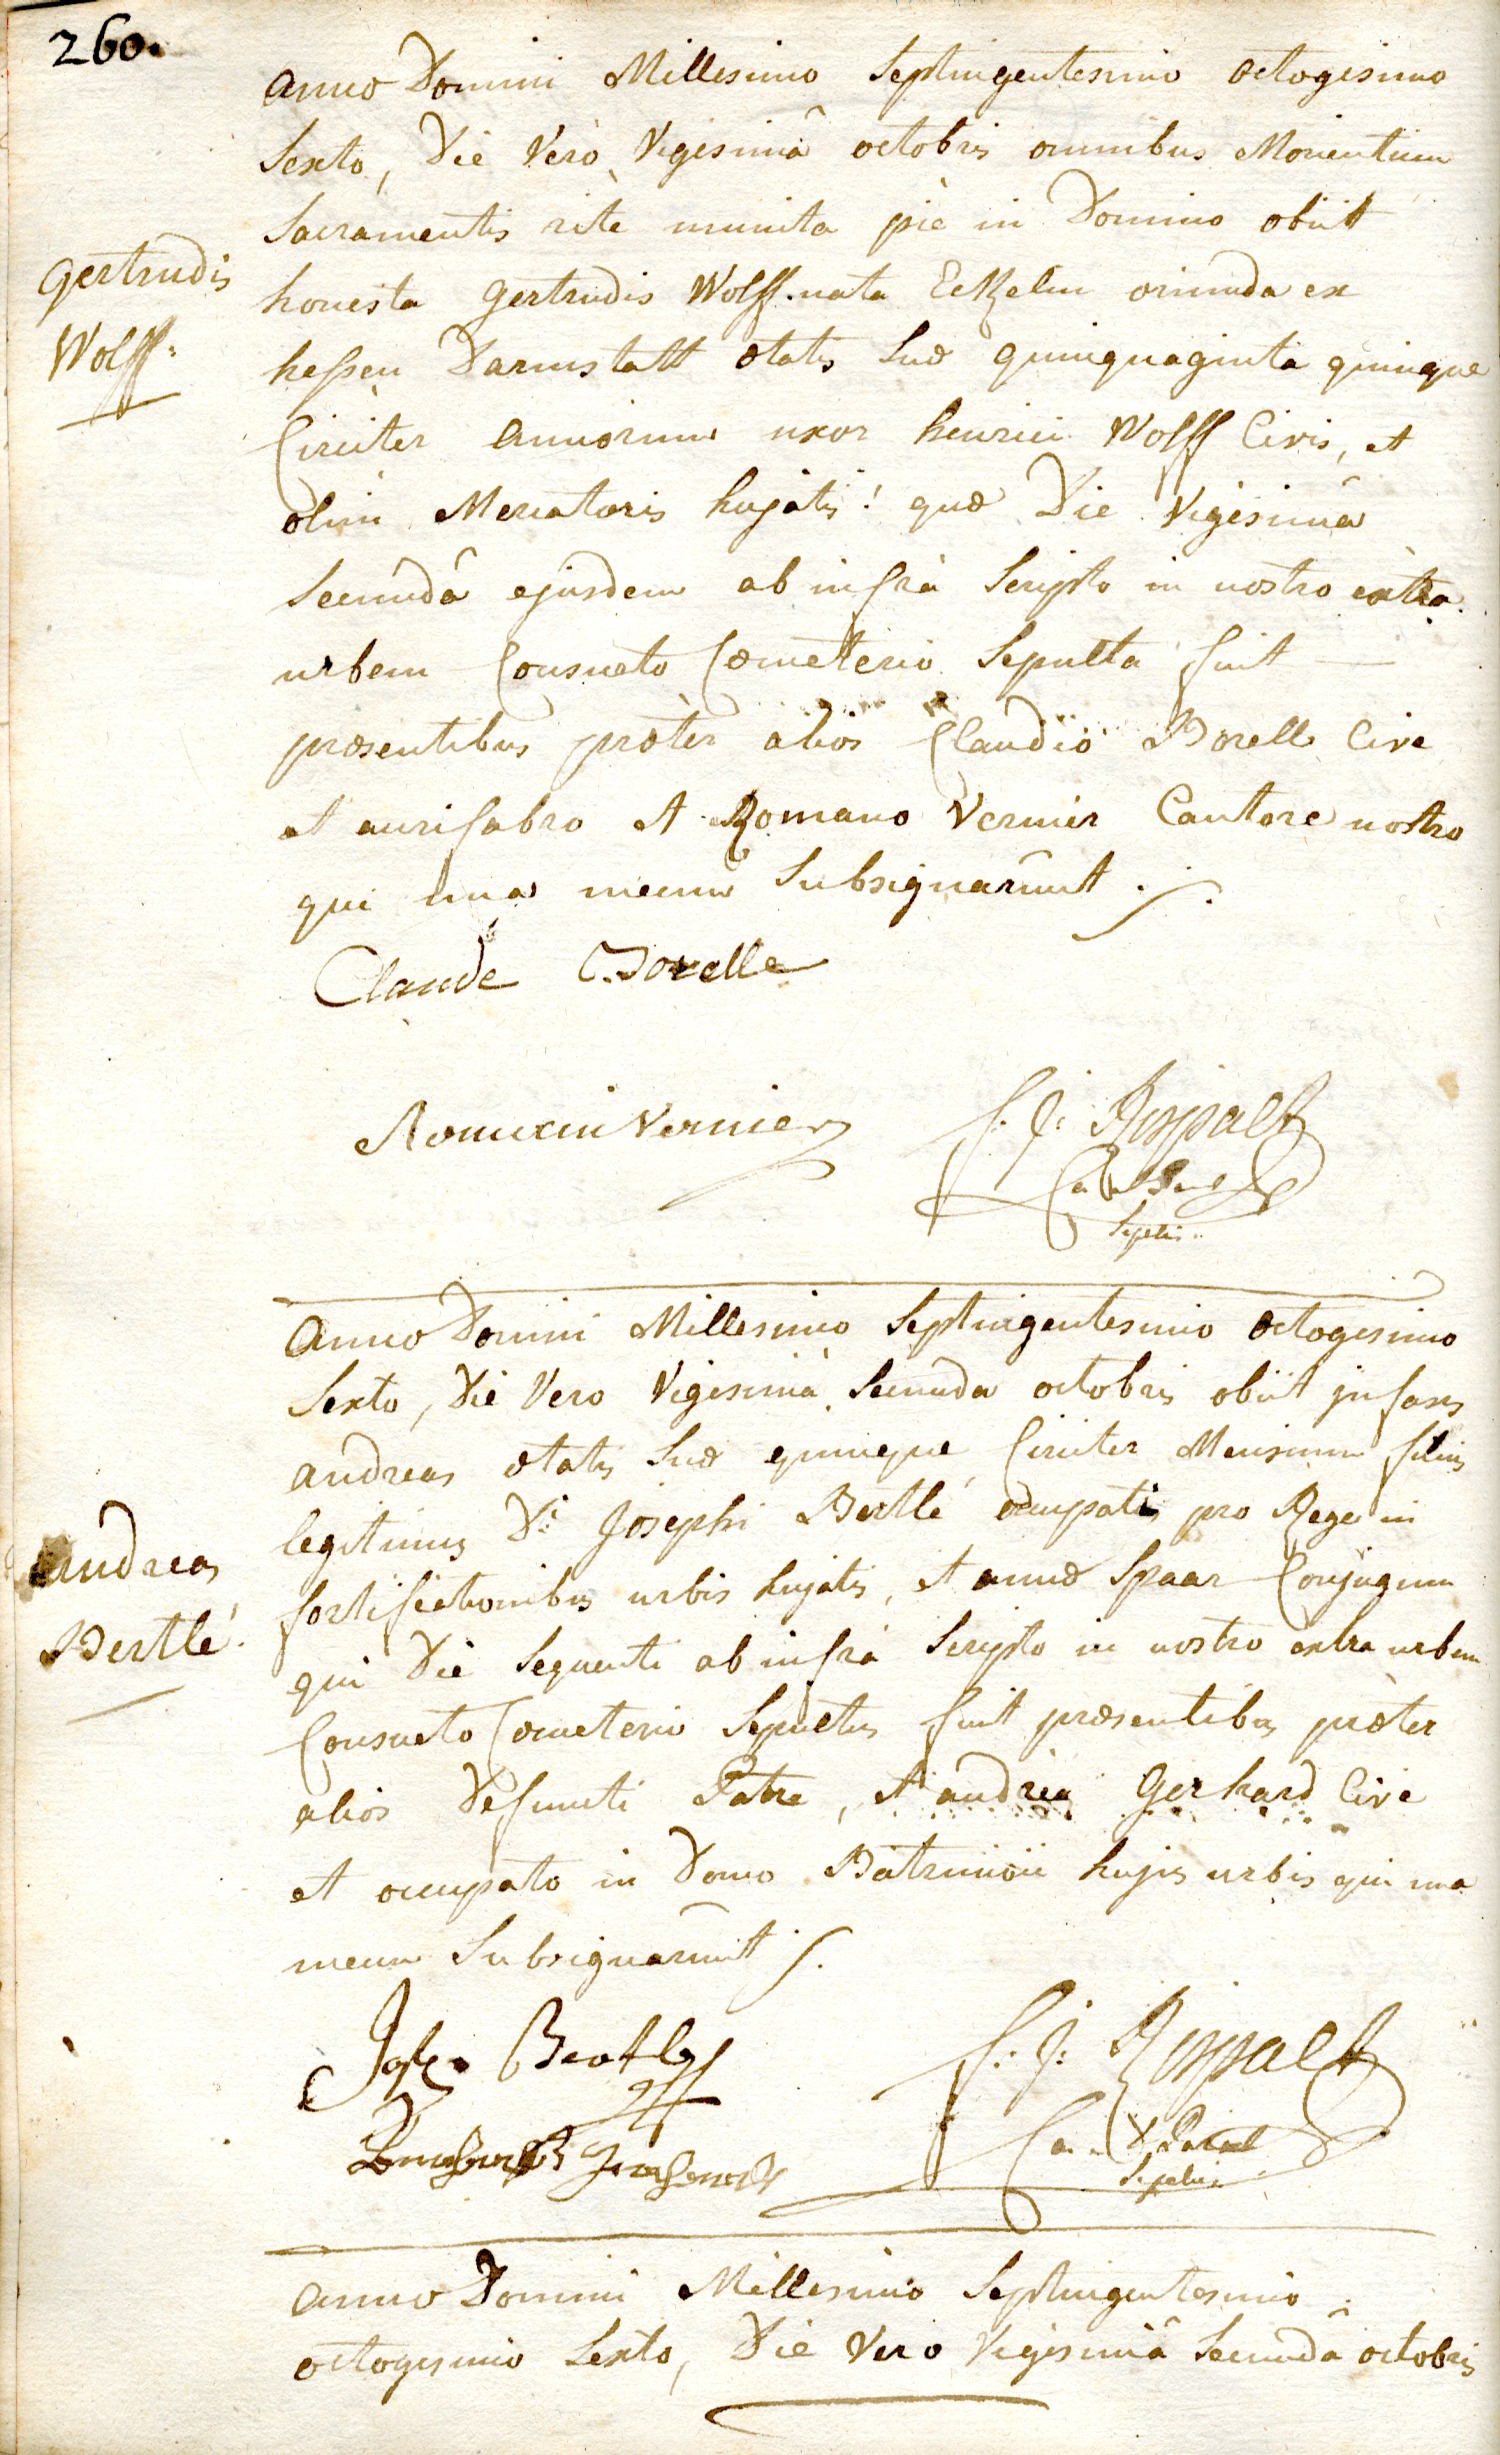 260.
Anno Domini Millesimo Septingentesimo octogesimo
Sexto, Die Verò Vigesimâ octobris omnibus Morientium
Sacramentis ritè munita piè in Domino obiit
Gertrudis
Wolff.
honesta Gertrudis Wolff. nata Eckelin oriunda ex
hessen Darmstatt ætatis Suæ quinquaginta quinque
Circiter annorum uxor henrici Wolff Civis, et
olim Mercatoris hujatis! quæ Die Vigesimâ
Secundâ ejusdem ab infrà Scripto in nostro extra
urbem Consueto Cœmeterio Sepulta fuit —
præsentibus præter alios Claudio Borelle Cive
et aurifabro et Romano Vernier Cantore nostro
qui una mecum Subsignarunt ./.
Claude Borelle
Romain Vernier
f. j. Rispalt
Sepeliens
Anno Domini Millesimo Septingentesimo octogesimo
Sexto, Die Vero Vigesimâ Secunda octobris obiit infans
andreas ætatis Suæ quinque Circiter Mensium filius
legitimus Di Josephi Bertlé occupatis pro Rege in
Andreas
Bertlé.
fortifictionibus urbis hujatis, et annæ Spaar Conjugum
qui Die Sequenti ab infrà Scripto in nostro extra urbem
Consueto Cœmeterio Sepultus fuit præsentibus præter
alios Defuncti Patre, et andrea Gerhard Cive
et occupato in Domo Patrimonii hujus urbis qui una
mecum Subsignarunt ./.
f. j. Rispalt
Sepeliens
Anno Domini Millesimo Septingentesimo
octogesimo Sexto, Die Vero Vigesimâ Secundâ octobris